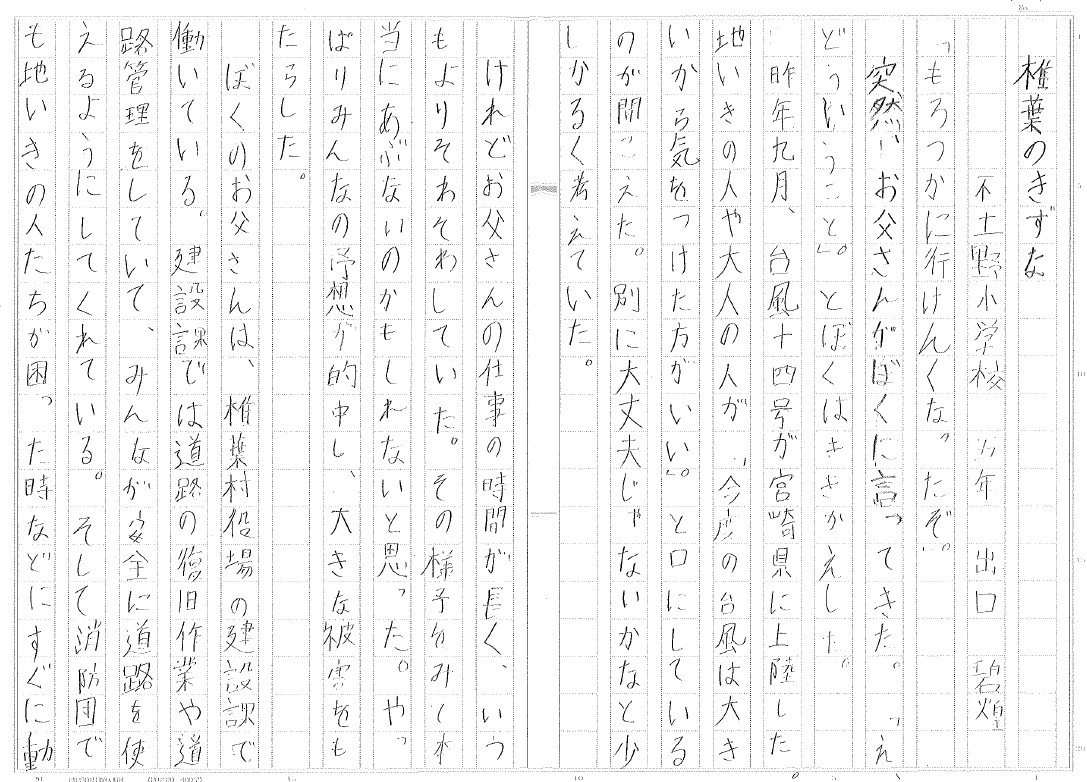 椎葉のきずな
不土野小学校　五年　出口　碧
「もろつかに行けんくなったぞ。」
突然、お父さんがぼくに言ってきた。「え
どういうこと」。とぼくはききかえした。
昨年九月、台風十四号が宮崎県に上陸した
地いきの人や大人の人が、「今度の台風は大き
いから気をつけた方がいい」。と口にしている
のが聞こえた。別に大丈夫じゃないかなと少
しかるく考えていた。
けれどお父さんの仕事の時間が長く、いつ
もよりそわそわしていた。その様子をみて本
当にあぶないのかもしれないと思った。やっ
ぱりみんなの予想が的中し、大きな被害をも
たらした。
ぼくのお父さんは、椎葉村役場の建設課で
働いている。建設課では道路の復旧作業や道
路管理をしていて、みんなが安全に道路を使
えるようにしてくれている。そして消防団で
も地いきの人たちが困った時などにすぐに動